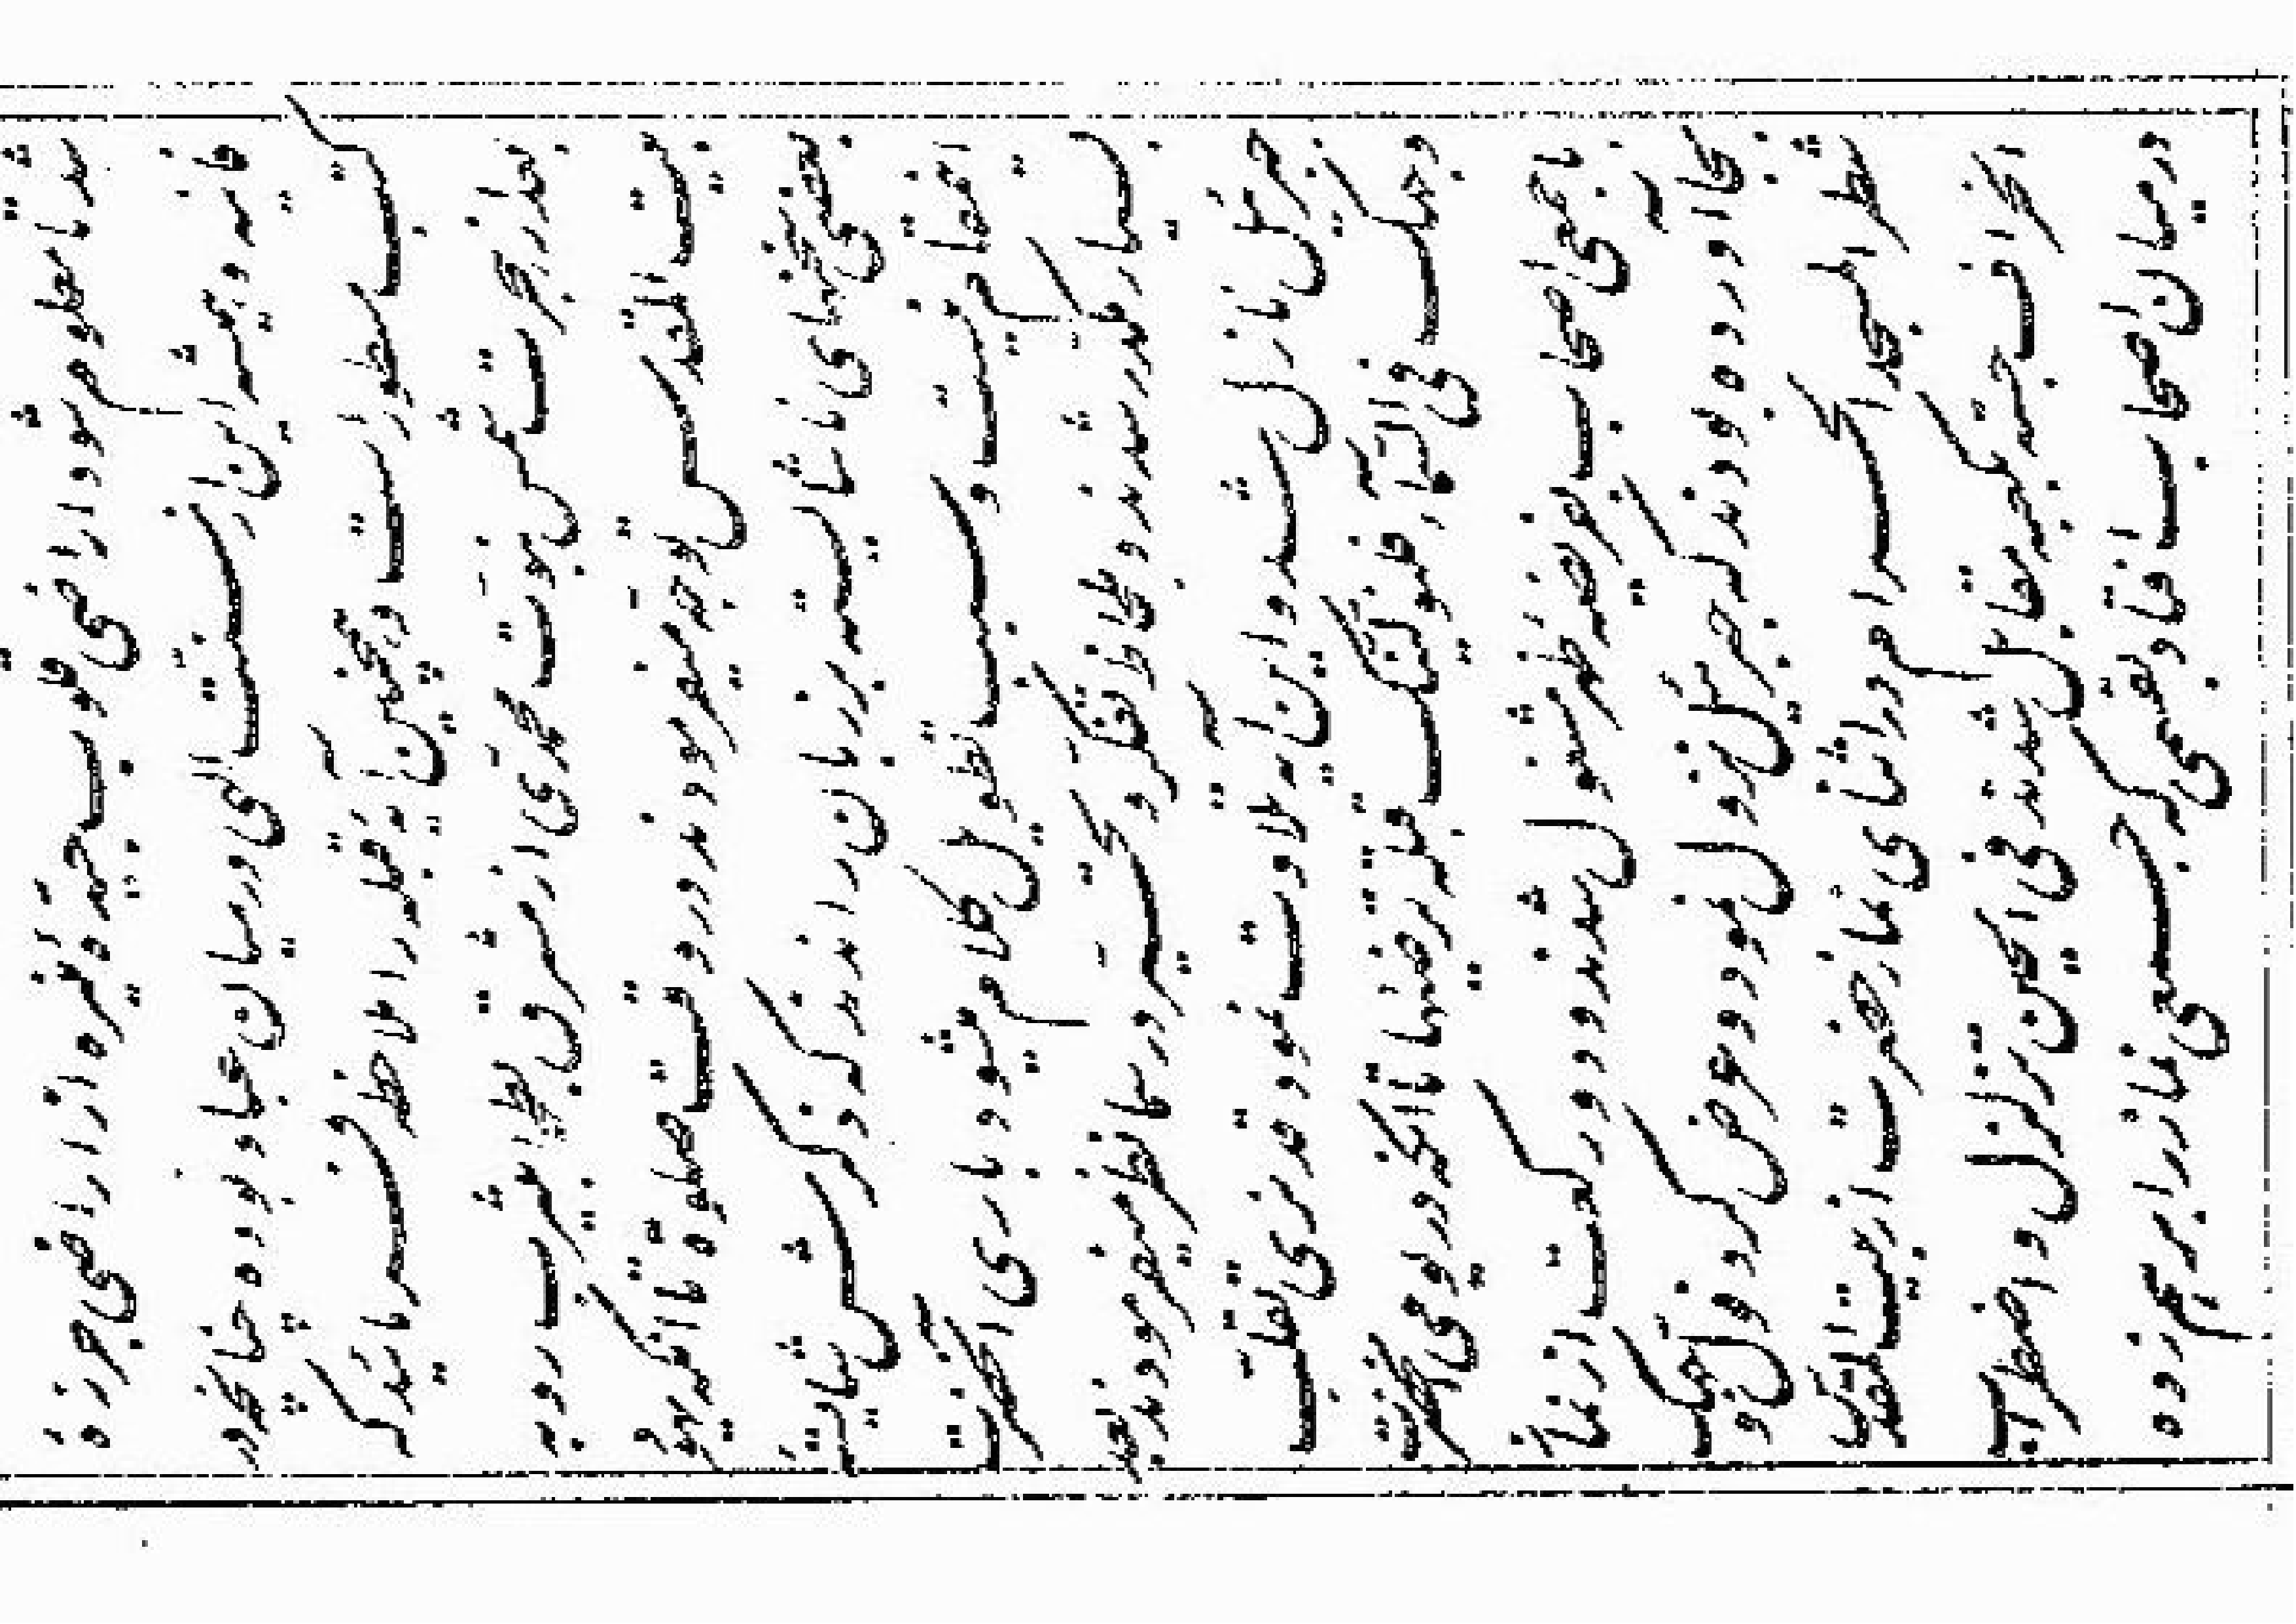 شد تا معلوم شود اراضی طیبه جیده منیره از اراضی جرزه
فانیه و همیشه این از سنت الهی در میان عباد بوده چنانچه در
کتب مسطور است و همچنین آیه قبله را ملاحظه فرمائید که
بعد از هجرت شمس نبوت محمدی از مشرق بطحا به یثرب رو به
بیت المقدس توجه میفرمودند در وقت صلوة تا آنکه یهود
بعضی سخنهای ناشایسته بر زبان راندند که ذکرش شایسته
این مقام نیست و سبب تطویل کلام میشود باری آنحضرت
بسیار مکدر شدند و بلحاظ تفکر و تحیر در سماء نظر میفرمودند بعد
جبرئیل نازل شد و این آیه تلاوت نمود قد نری تقلب
وجهک فی السماء فلنولینک قبلة ترضیها تا آنکه در یومی آنحضرت
با جمعی از اصحاب بفریضه ظهر مشغول شدند و دو رکعت از نماز
بجا آورده بودند که جبرئیل نزول نمود و عرض کرد فول وجهک
شطر المسجد الحرام در اثنای نماز حضرت از بیت المقدس
انحراف جسته بکعبه مقابل شدند فی الحین تزلزل و اضطراب
در میان اصحاب افتاد بقسمی که جمعی نماز را بر هم زده